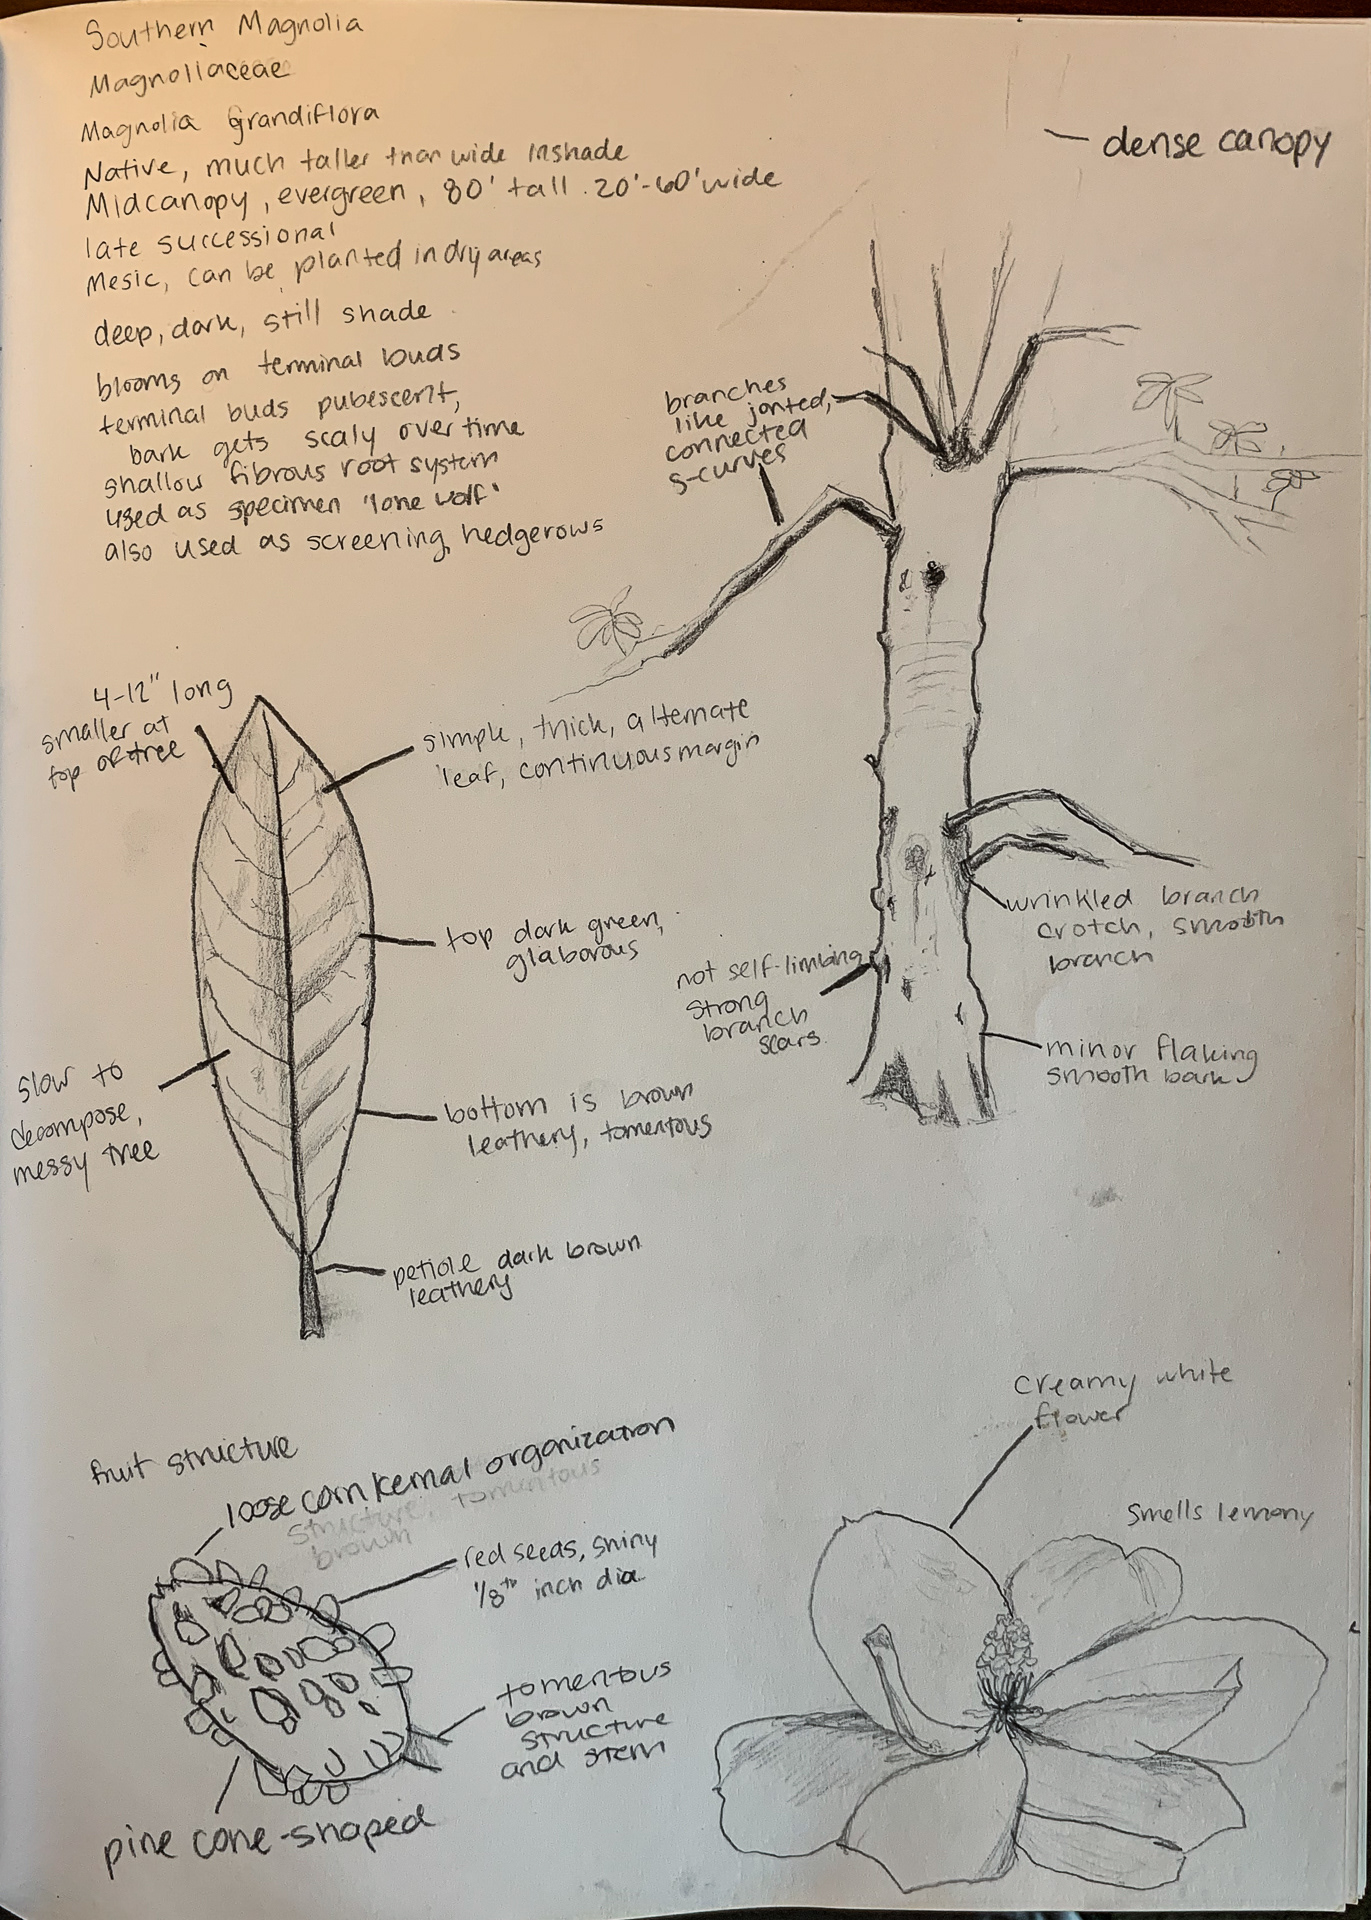 Southern Magnolia
Magnoliaceae
Magnolia Grandiflora
Native, much taller than wide in shade
Midcanopy, evergreen, 80' tall. 20'-60' wide
late successional
Mesic, can be planted in dry areas
deep, dark, still shade
blooms on terminal buds
terminal buds pubescent,
bark gets scaly over time
shallow fibrous root system
used as specimen 'lone wolf'
also used as screening, hedgerows
dense canopy
branches
like jonted,
connected
s-curves
4-12" long
smaller at
top of tree
simple, thick, alternate
leaf, continuous margin
top dark green,
glaborous
slow to
decompose,
messy tree
bottom is brown
leathery, tomentous
petiole dark brown
leathery
wrinkled branch
crotch, smooth
branch
not self-limbing
strong
branch
scars
minor flaking
smooth bark
fruit structure
loose corn kernal organization
structure, tomentous
brown
red seeds, shiny
1/8th inch dia
tomentous
brown
structure
and stem
pine cone-shaped
creamy white
flower
smells lemony